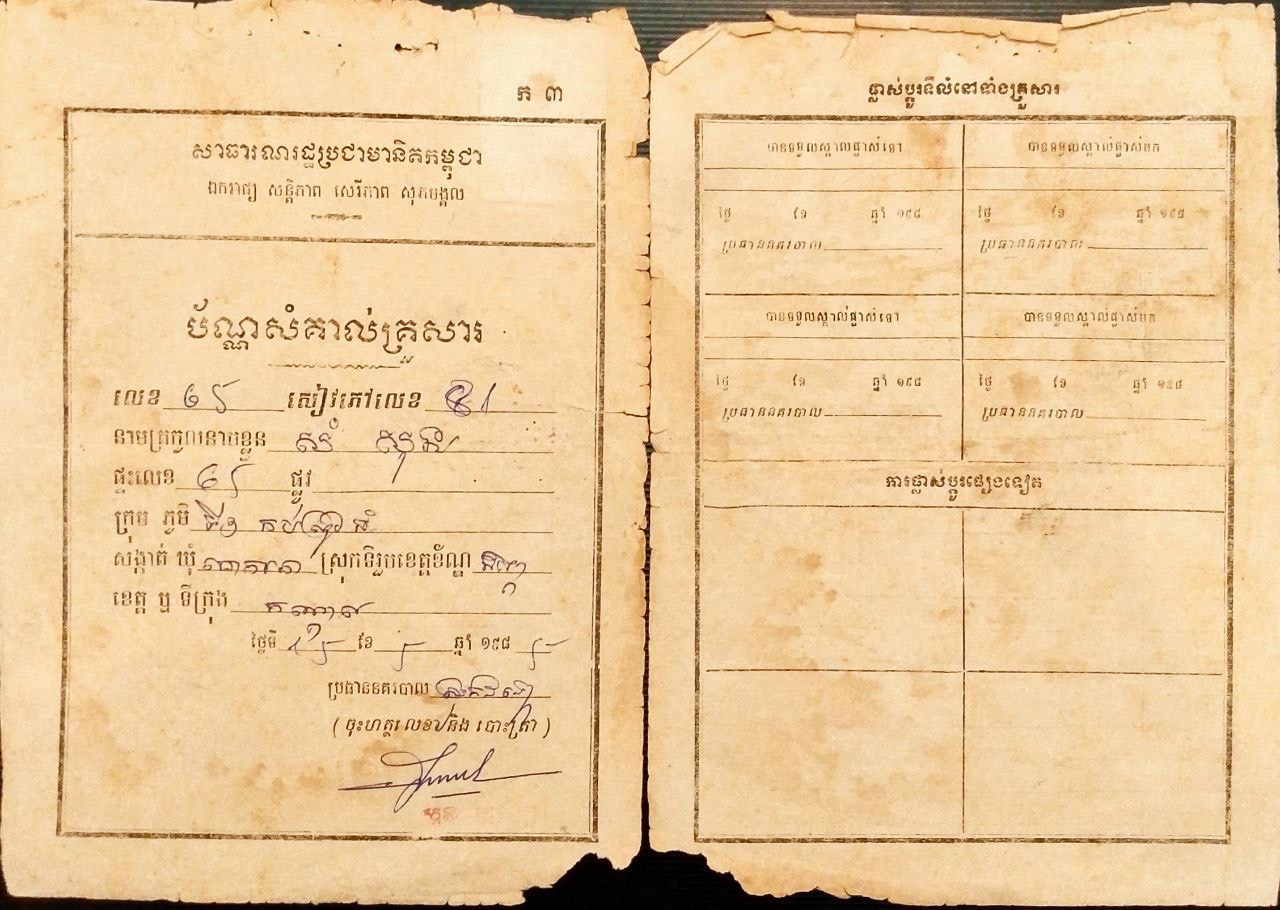 ក ៣
សាធារណរដ្ឋប្រជាមានិតកម្ពុជា
ឯករាជ្យ សន្តិភាព សេរីភាព សុភមង្គល
ប័ណ្ណសំគាល់គ្រួសារ
លេខ ៦៥ សៀវភៅលេខ
នាមត្រកូលនាមខ្លួន សំ
ផ្ទះលេខ ៦៥ ផ្លូវ
ក្រុម ភូមិ
សង្កាត់ ឃុំ ស្រុកទីរួមខេត្តខ័ណ្ឌ
ខេត្ត ឬ ទីក្រុង កណ្តាល
ថ្ងៃទី ១៥ ខែ ៥ ឆ្នាំ ១៩៨ ៥
ប្រធាននគរបាល
( ចុះហត្ថលេខា និង បោះត្រា )
ផ្លាស់ប្តូរទីលំនៅទាំងគ្រួសារ
បានទទួលស្គាល់ផ្លាស់ទៅ បានទទួលស្គាល់ផ្លាស់មក
ថ្ងៃ ខែ ឆ្នាំ ១៩៨ ថ្ងៃ ខែ ឆ្នាំ ១៩៨
ប្រធាននគរបាល ប្រធាននគរបាល
បានទទួលស្គាល់ផ្លាស់ទៅ បានទទួលស្គាល់ផ្លាស់មក
ថ្ងៃ ខែ ឆ្នាំ ១៩៨ ថ្ងៃ ខែ ឆ្នាំ ១៩៨
ប្រធាននគរបាល ប្រធាននគរបាល
ការផ្លាស់ប្តូរផ្សេងទៀត